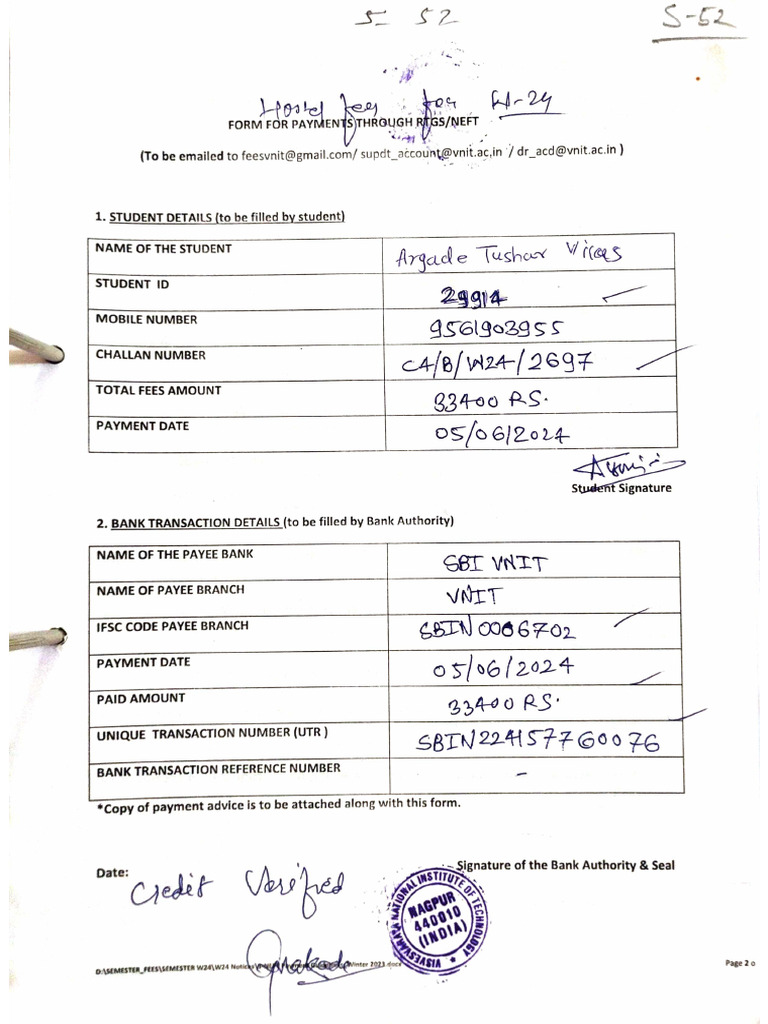 S- 52
S-52
Hostel fees for W-24
FORM FOR PAYMENTS THROUGH RTGS/NEFT
(To be emailed to feesvnit@gmail.com/ supdt_account@vnit.ac,in / dr_acd@vnit.ac.in )
1. STUDENT DETAILS (to be filled by student)
NAME OF THE STUDENT Argade Tushar Vikas
STUDENT ID 29914
MOBILE NUMBER 9561903955
CHALLAN NUMBER C4/B/W24/2697
TOTAL FEES AMOUNT 33400 RS.
PAYMENT DATE 05/06/2024
Student Signature
2. BANK TRANSACTION DETAILS (to be filled by Bank Authority)
NAME OF THE PAYEE BANK SBI VNIT
NAME OF PAYEE BRANCH VNIT
IFSC CODE PAYEE BRANCH SBIN0006702
PAYMENT DATE 05/06/2024
PAID AMOUNT 33400 RS.
UNIQUE TRANSACTION NUMBER (UTR ) SBIN224157760076
BANK TRANSACTION REFERENCE NUMBER -
*Copy of payment advice is to be attached along with this form.
Date:
Signature of the Bank Authority & Seal
Credit Verified
VISVESVARAYA NATIONAL INSTITUTE OF TECHNOLOGY
NAGPUR
440010
(INDIA)
D:\SEMESTER_FEES\SEMESTER W24\W24 Notices\ Winter 2023.docx
Page 2 o